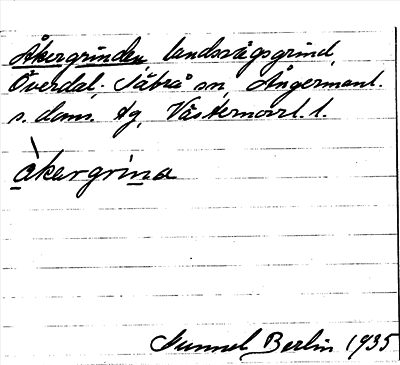 Åkergrinden, landsvägsgrind,
Överdal, Säbrå sn, Ångermanl.
s. doms. tg, Västernorrl. l.
åkərgrína
Gunnel Berlin 1935